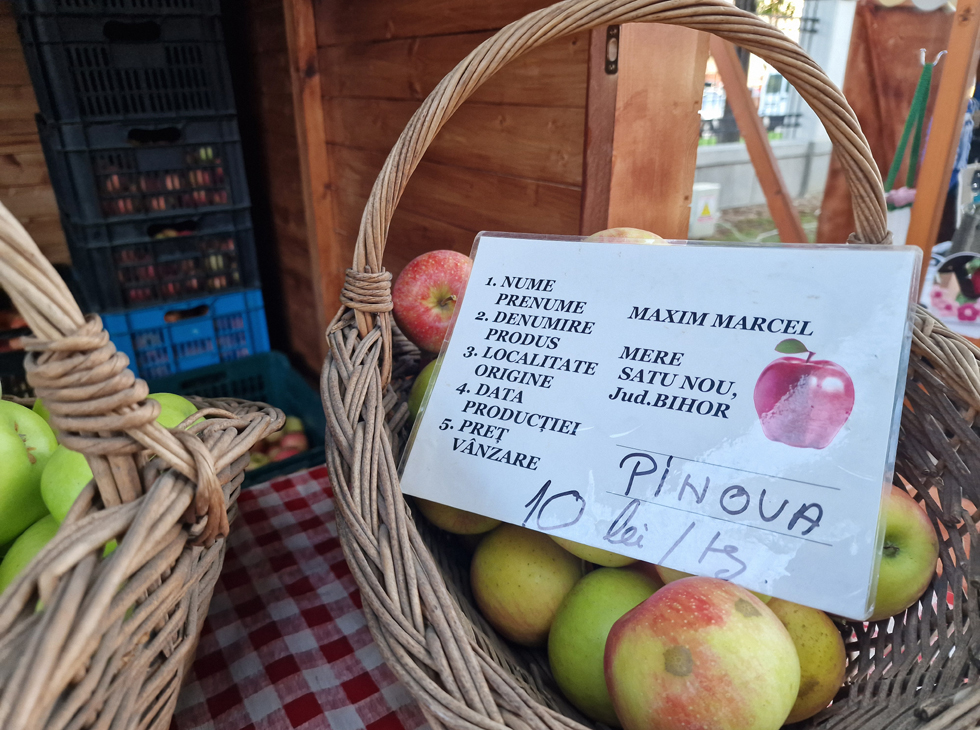 1. NUME
PRENUME
MAXIM MARCEL
2. DENUMIRE
PRODUS
MERE
3. LOCALITATE
ORIGINE
SATU NOU,
Jud.BIHOR
4. DATA
PRODUCȚIEI
PINOVA
5. PREȚ
VÂNZARE
10 lei / kg.